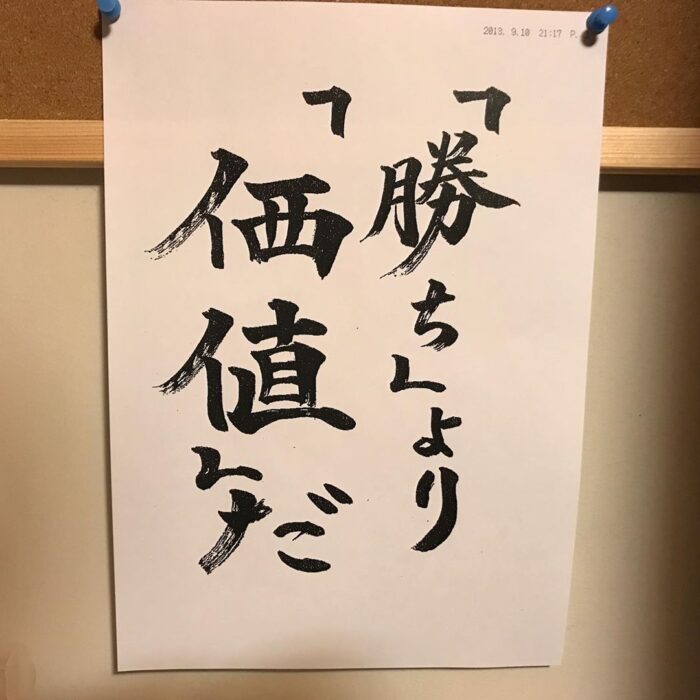 2013. 9.10 21:17 P.
「勝ち」より
「価値」だ